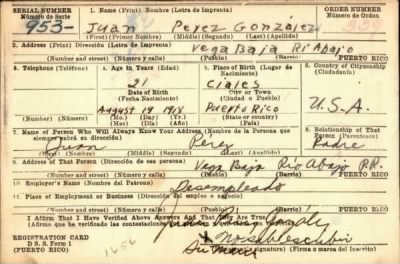 SERIAL NUMBER
Número de Serie
1. Name (Print) (Letra de Imprenta)
ORDER NUMBER
Número de Orden
953-
Juan Perez González
(First) (Primer Nombre) (Middle) (Segundo) (Last) (Apellido)
2. Address (Print) Dirección (Letra de Imprenta)
Vega Baja Rio Abajo
(Number) (Número) (Street) (Número y calle)
PUERTO RICO
3. Telephone (Teléfono)
4. Age in Years (Edad)
5. Place of Birth (Lugar de Nacimiento)
6. Country of Citizenship (Ciudadanía)
21
Ciales
Date of Birth
(Fecha Nacimiento)
City or Town
(Ciudad o Pueblo)
August 19 1918
Puerto Rico
U.S.A.
(Number) (Número)
(Mo.) (Day) (Yr.)
(Mes) (Día) (Año)
(State or country)
(Estado o país)
7. Name of Person Who Will Always Know Your Address (Nombre de la Persona que siempre sabrá su dirección)
8. Relationship of That Person (Parentesco)
Juan Pérez
Padre
(First) (Primer Nombre) (Middle) (Segundo) (Last) (Apellido)
9. Address of That Person (Dirección de esa persona)
Vega Baja Rio Abajo P.R.
(Number) (Número) (Street) (Número y calle)
PUERTO RICO
10. Employer's Name (Nombre del Patrono)
Desempleado
11. Place of Employment or Business (Dirección del empleo o negocio)
(Number) (Número) (Street) (Número y calle)
PUERTO RICO
I Affirm That I Have Verified Above Answers And That They Are True.
(Afirmo que he verificado las contestaciones
Juan
REGISTRATION CARD
D. S. S. Form 1
(PUERTO RICO)
No sabe escribir
Su marca
(Firma o marca del Inscrito)